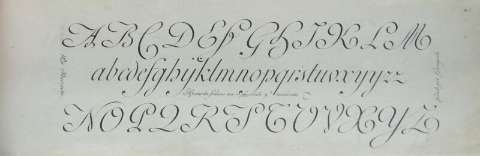 A B C D E F G H I K L M
abcdefghijklmnopqrstuvxyyzz
N O P Q R S T U V X Y Z